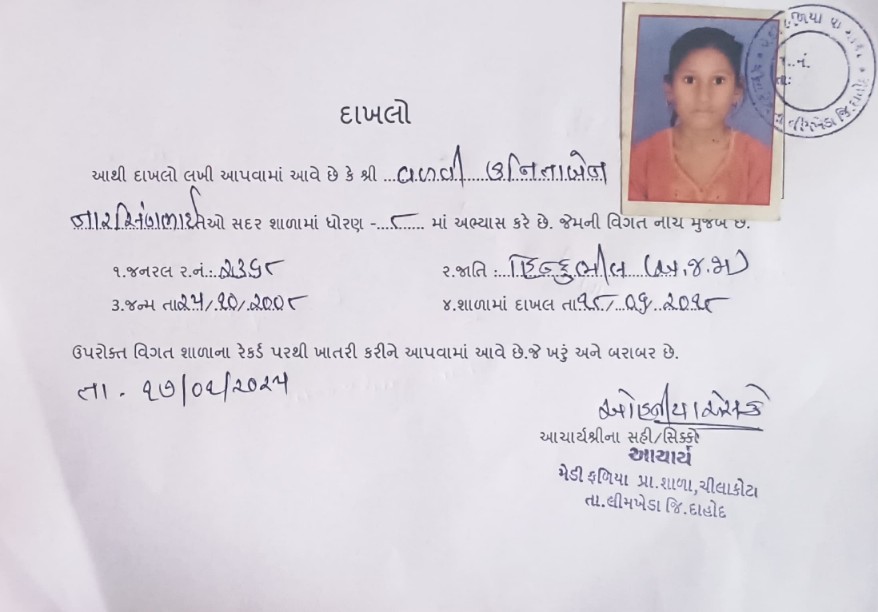 દાખલો
આથી દાખલો લખી આપવામાં આવે છે કે શ્રી ...વળવી અનિતાબેન
નારસિંગભાઈ તેઓ સદર શાળામાં ધોરણ -...૮... માં અભ્યાસ કરે છે. જેમની વિગત નીચે મુજબ છે.
૧.જનરલ ર.નં.:.૨૩૬૮ ૨.જાતિ :..હિન્દુ ભીલ (અ.જ.જા)
૩.જન્મ તા ૨૫/૧૦/૨૦૦૮ ૪.શાળામાં દાખલ તા.૧૮/૦૬/૨૦૧૮
ઉપરોક્ત વિગત શાળાના રેકર્ડ પરથી ખાતરી કરીને આપવામાં આવે છે.જે ખરું અને બરાબર છે.
તા. ૧૭/૦૧/૨૦૨૫
આચાર્યશ્રીના સહી/સિક્કો
આચાર્ય
મેડી ફળિયા પ્રા.શાળા,ચીલાકોટા
તા.લીમખેડા જિ.દાહોદ